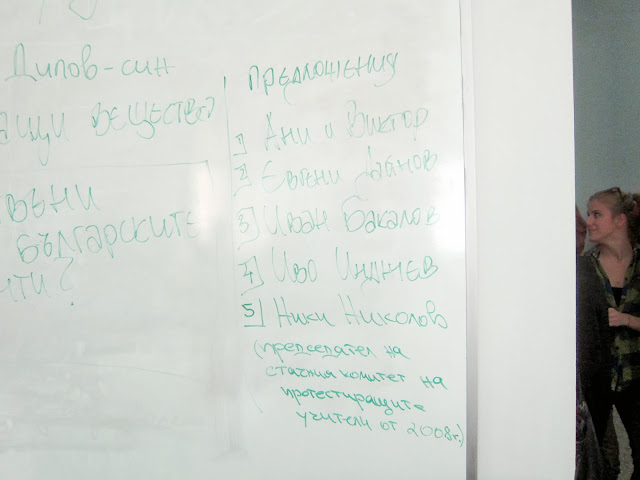 Дилов-син
ащи вещества
вени
българските
нти?
Предложения
1] Ани и Виктор
2] Евгени Дайнов
3] Иван Бакалов
4] Иво Инджев
5] Ники Николов
(председател на
стачния комитет на
протестиращите
учители от 2008г.)